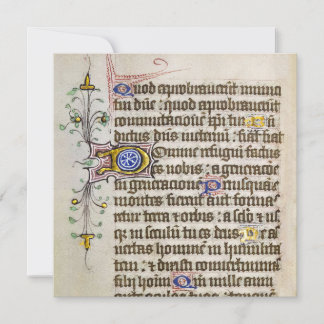 Quod exprobraverūt inimi
tui dñe : quod exprobraverūt
cōmutacionē xp̄i tui Bene
dictus dñs in eternū : fiat fiat
Domine refugiū factus
es nobis : a generacione
in generacionem Priusquam
montes fierent aut forma
retur terra et orbis : a sclō et us
q; in seculū tu es deus Ne a
vertas hominē in humilita
tem : et dixisti convertimini
filij hoīm Qm̄ mille anni